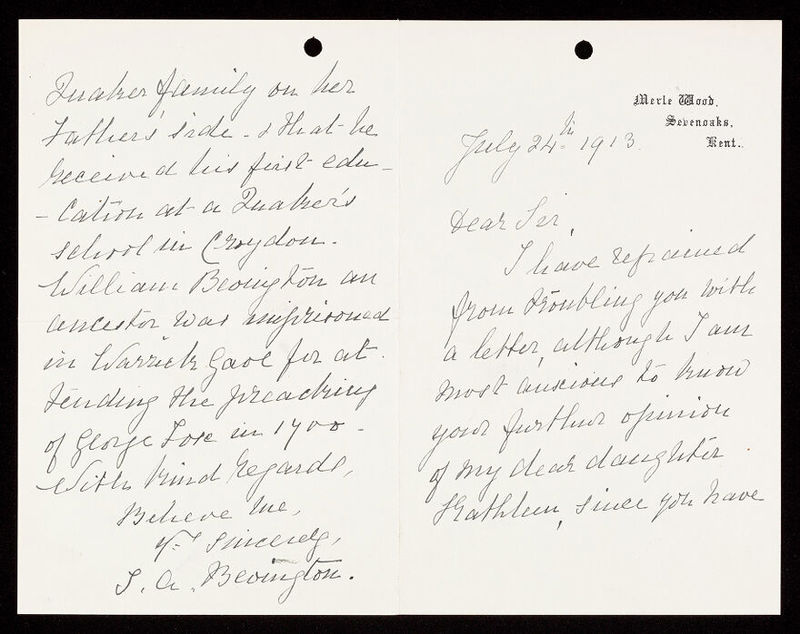 Merle Wood,
Sevenoaks,
Kent.
July 24th 1913
Dear Sir,
I have refrained
from troubling you with
a letter, although I am
most anxious to know
your further opinion
of my dear daughter
Kathleen, since you have
Quaker family on her
Father's side - & that he
received his first edu-
-cation at a Quaker's
school in Croydon.
William Bevington an
ancestor was imprisoned
in Warrick Gaol for at-
tending the preaching
of George Fox in 1700 -
With kind regards,
Believe me,
Yrs sincerely,
S. A. Bevington.